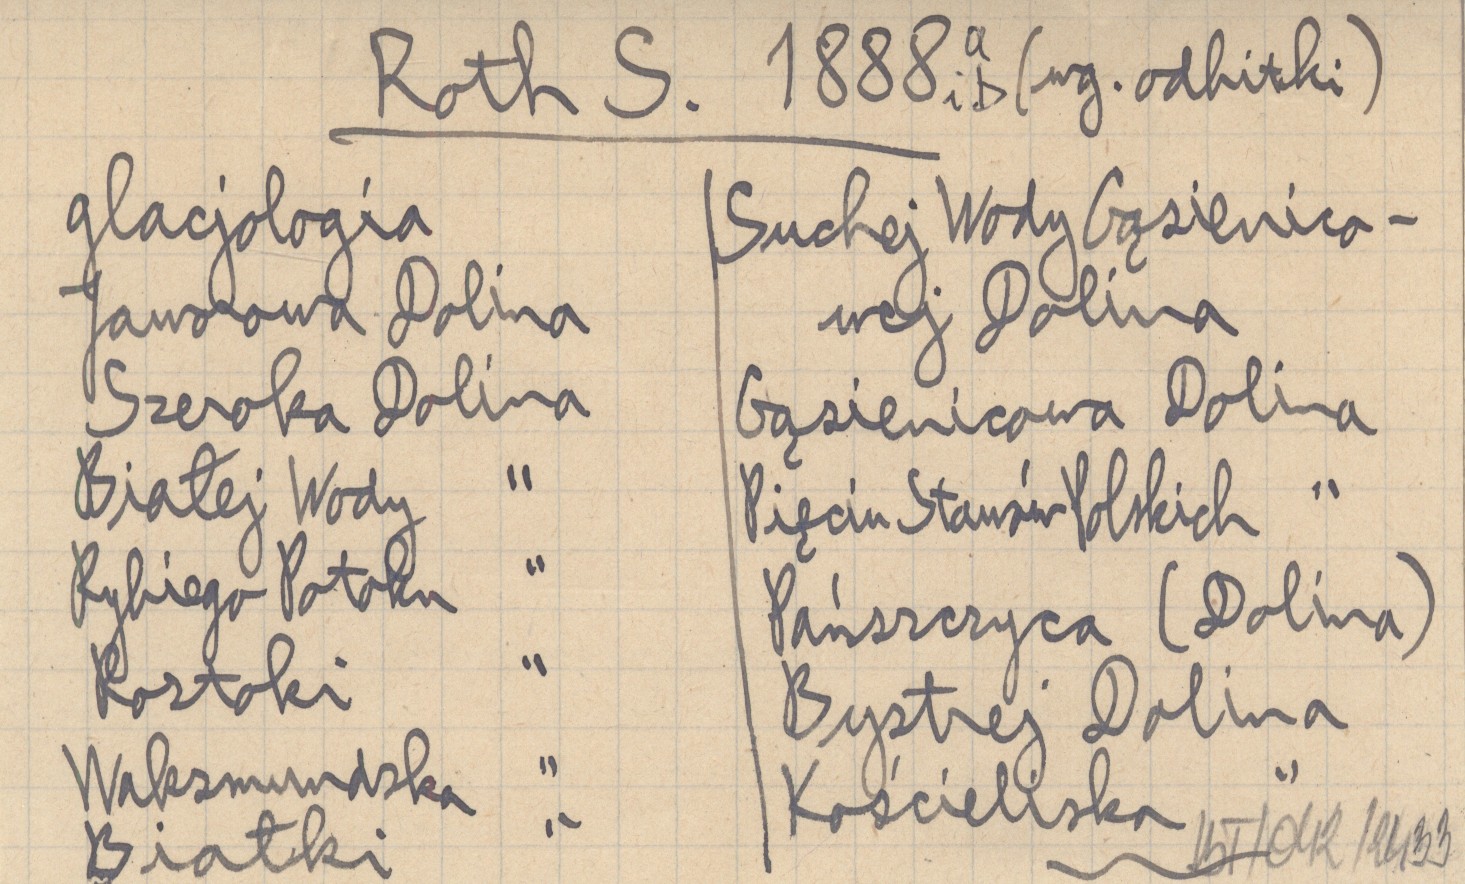 Roth S. 1888 a i b (wg. odbitki)
glacjologia
Jaworowa Dolina
Szeroka Dolina
Białej Wody "
Rybiego Potoku "
Roztoki "
Waksmundzka "
Białki "
Suchej Wody Gąsienico-
wej Dolina
Gąsienicowa Dolina
Pięciu Stawów Polskich "
Pańszczyca (Dolina)
Bystrej Dolina
Kościeliska "